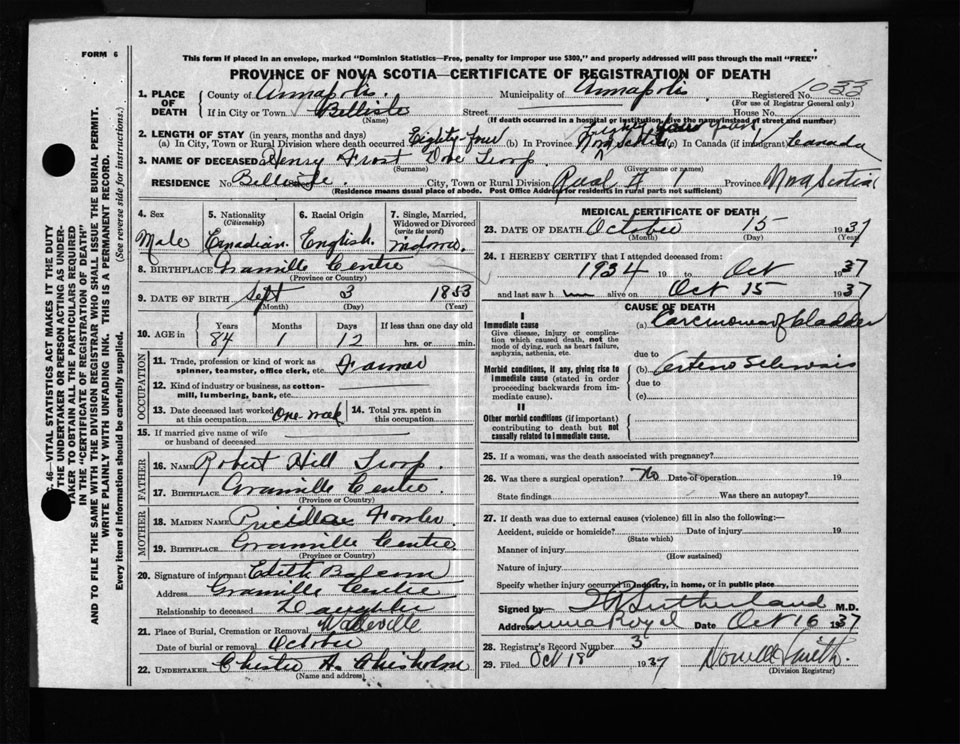 FORM 6
This form if placed in an envelope, marked "Dominion Statistics—Free, penalty for improper use $300," and properly addressed will pass through the mail "FREE"
PROVINCE OF NOVA SCOTIA—CERTIFICATE OF REGISTRATION OF DEATH
1. PLACE OF DEATH County of Annapolis. Municipality of Annapolis. Registered No. 1033
(For use of Registrar General only)
If in City or Town Bellisle Street House No.
(Name) (If death occurred in a hospital or institution, give the name instead of street and number)
2. LENGTH OF STAY (in years, months and days)
(a) In City, Town or Rural Division where death occurred Eighty-four (b) In Province Nova Scotia (c) In Canada (if immigrant) Canada
3. NAME OF DECEASED Henry Frost Troop
(Surname) (Given name or names)
RESIDENCE No. Bellisle Street City, Town or Rural Division Rural # 1 Province Nova Scotia
(Residence means usual place of abode. Post Office Address for residents in rural parts not sufficient)
4. Sex Male
5. Nationality (Citizenship) Canadian.
6. Racial Origin English.
7. Single, Married, Widowed or Divorced (write the word)
8. BIRTHPLACE Granville Centre
(Province or Country)
9. DATE OF BIRTH Sept 3 1853
(Month) (Day) (Year)
10. AGE in Years Months Days If less than one day old
84 1 12 hrs. or min.
OCCUPATION
11. Trade, profession or kind of work as spinner, teamster, office clerk, etc. Farmer
12. Kind of industry or business, as cotton-mill, lumbering, bank, etc.
13. Date deceased last worked at this occupation One week
14. Total yrs. spent in this occupation
15. If married give name of wife or husband of deceased
FATHER
16. NAME Robert Hill Troop.
17. BIRTHPLACE Granville Centre
(Province or Country)
MOTHER
18. MAIDEN NAME Pricillae Fowler.
19. BIRTHPLACE Granville Centre.
(Province or Country)
20. Signature of informant Edith Balcom
Address Granville Centre
Relationship to deceased Daughter
21. Place of Burial, Cremation or Removal
Date of burial or removal October
22. UNDERTAKER Chester A. Chisholm
(Name and address)
MEDICAL CERTIFICATE OF DEATH
23. DATE OF DEATH October 15 1937
(Month) (Day) (Year)
24. I HEREBY CERTIFY that I attended deceased from:
1934 19 to Oct 1937
and last saw h im alive on Oct 15 1937
CAUSE OF DEATH
I
Immediate cause
Give disease, injury or complication which caused death, not the mode of dying, such as heart failure, asphyxia, asthenia, etc.
(a) Carcinoma of bladder
due to
Morbid conditions, if any, giving rise to immediate cause (stated in order proceeding backwards from immediate cause).
(b) Arterio Sclerosis
due to
(c)
II
Other morbid conditions (if important) contributing to death but not causally related to immediate cause.
25. If a woman, was the death associated with pregnancy?
26. Was there a surgical operation? No Date of operation 19
State findings Was there an autopsy?
27. If death was due to external causes (violence) fill in also the following:—
Accident, suicide or homicide? Date of injury 19
(State which)
Manner of injury
(How sustained)
Nature of injury
Specify whether injury occurred in industry, in home, or in public place
Signed by Sutherland M.D.
Address Anna Royal Date Oct 16 1937
28. Registrar's Record Number 3
29. Filed Oct 18 1937 Smith
(Division Registrar)
46—VITAL STATISTICS ACT MAKES IT THE DUTY
THE UNDERTAKER OR PERSON ACTING AS UNDERTAKER TO OBTAIN ALL THE PARTICULARS REQUIRED
IN THE "CERTIFICATE OF REGISTRATION OF DEATH"
AND TO FILE THE SAME WITH THE DIVISION REGISTRAR WHO SHALL ISSUE THE BURIAL PERMIT.
WRITE PLAINLY WITH UNFADING INK. THIS IS A PERMANENT RECORD.
Every item of information should be carefully supplied. (See reverse side for instructions.)